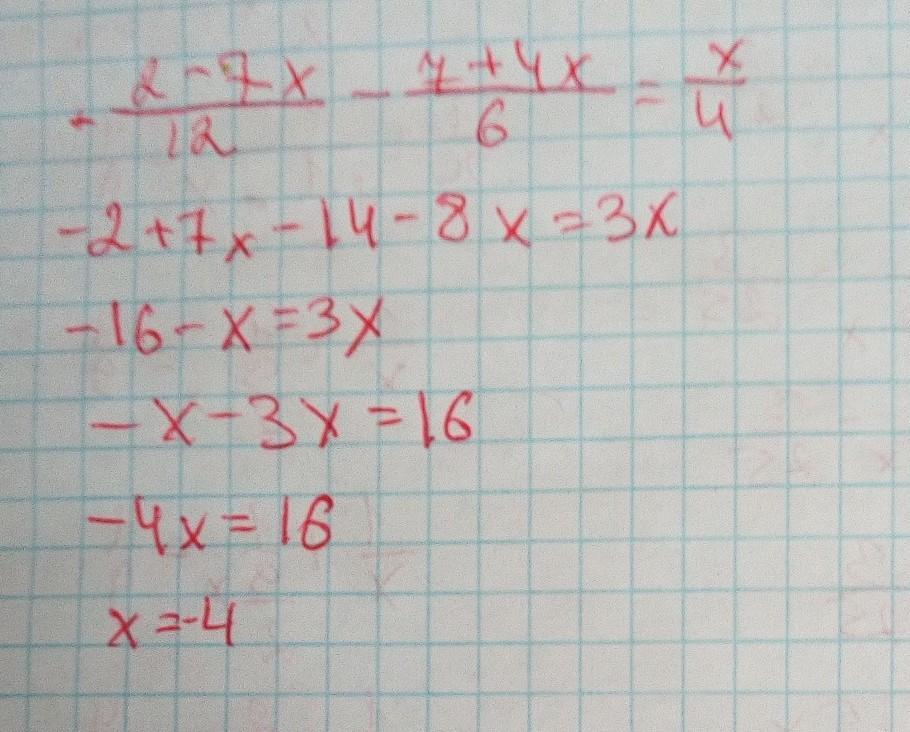 - (2-7x)/12 - (7+4x)/6 = x/4
-2+7x-14-8x=3x
-16-x=3x
-x-3x=16
-4x=16
x=-4